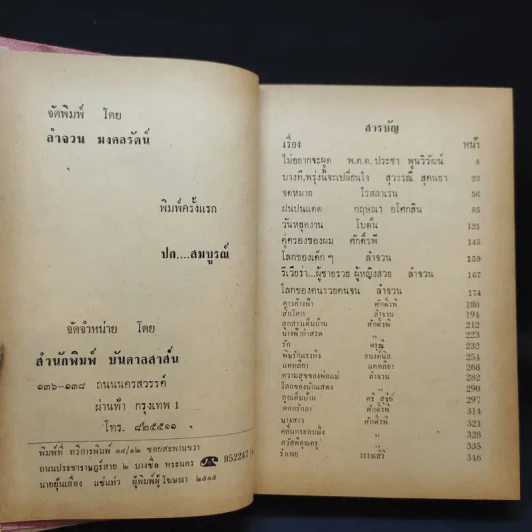 จัดพิมพ์ โดย
ลำจวน มงคลรัตน์
พิมพ์ครั้งแรก
ปก....สมบูรณ์
จัดจำหน่าย โดย
สำนักพิมพ์ บันดาลสาส์น
๑๓๖-๑๓๘ ถนนนครสวรรค์
ผ่านฟ้า กรุงเทพ 1
โทร. ๘๒๕๕๑๑
พิมพ์ที่ ทวีการพิมพ์ ๑๔/๑๒ ซอยสะพานขวา
ถนนประชาราษฎร์สาย ๒ บางซื่อ พระนคร ☎ 852247
นายฮุ้นเลี้ยง แซ่แห่ว ผู้พิมพ์ผู้โฆษณา ๒๕๑๕
สารบัญ
เรื่อง หน้า
ไม่อยากจะผูด พ.ต.ต. ประชา พูนวิวัฒน์ 4
บางที,พรุ่งนี้จะเปลี่ยนใจ สุวรรณี สุคนธา 23
จดหมาย โรสลาเรน 56
ฝนปนแดด กฤษณา อโศกสิน 85
วันหยุดงาน โบตั๋น 121
คู่ครองของผม ศักดิ์รพี 145
โลกของเด็ก ๆ ลำจวน 159
รีเวียรา...ผู้ชายรวย ผู้หญิงสวย ลำจวน 167
โลกของคนรวยคนจน ลำจวน 174
ศักดิ์รพี 180
ลำจวน 194
ลูกสาวเต็มบ้าน ศักดิ์รพี 212
223
รัก ดรุณี 232
254
แคทลียา 268
ความสุขของพ่อแม่ ลำจวน 282
โลกของนักแสดง " 290
297
ศักดิ์รพี 314
นางสาว ศักดิ์รพี 321
" 328
สวัสดีคุณครู " 335
รำเพย วรรณสิริ 346